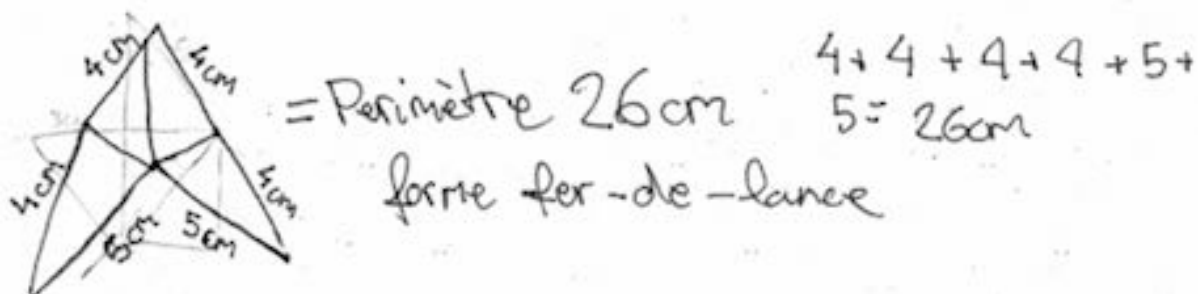 4cm
4cm
4cm
4cm
5cm
5cm
= Perimètre 26cm
forme fer-de-lance
4+ 4 + 4 + 4 + 5+
5= 26cm